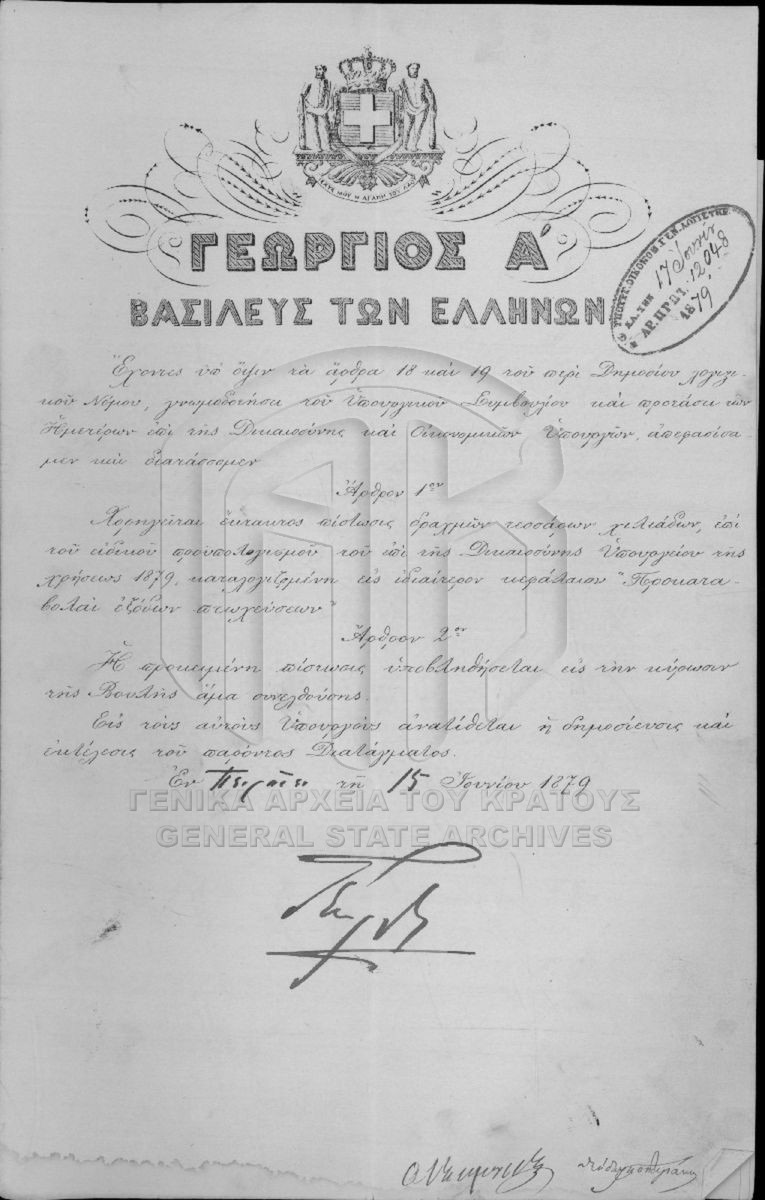 ΙΣΧΥΣ ΜΟΥ Η ΑΓΑΠΗ ΤΟΥ ΛΑΟΥ
ΓΕΩΡΓΙΟΣ Α'
ΒΑΣΙΛΕΥΣ ΤΩΝ ΕΛΛΗΝΩΝ
17 Ιουνίου
ΑΡ. ΠΡΩΤ. 12048
1879
Ἔχοντες ὑπ' ὄψιν τὰ ἄρθρα 18 καὶ 19 τοῦ περὶ Δημοσίου λογιστι-
κοῦ Νόμου, γνωμοδοτήσει τοῦ Ὑπουργικοῦ Συμβουλίου καὶ προτάσει τῶν
Ἡμετέρων ἐπὶ τῆς Δικαιοσύνης καὶ Οἰκονομικῶν Ὑπουργῶν, ἀπεφασίσα-
μεν καὶ διατάσσομεν
Ἄρθρον 1ον
Χορηγεῖται ἔκτακτος πίστωσις δραχμῶν τεσσάρων χιλιάδων, ἐπὶ
τοῦ εἰδικοῦ προϋπολογισμοῦ τοῦ ἐπὶ τῆς Δικαιοσύνης Ὑπουργείου τῆς
χρήσεως 1879, καταλογιζομένη εἰς ἰδιαίτερον κεφάλαιον "Προκατα-
βολαὶ ἐξόδων πτωχεύσεων"
Ἄρθρον 2ον
Ἡ προκειμένη πίστωσις ὑποβληθήσεται εἰς τὴν κύρωσιν
τῆς Βουλῆς ἅμα συνελθούσης.
Εἰς τοὺς αὐτοὺς Ὑπουργοὺς ἀνατίθεται ἡ δημοσίευσις καὶ
ἐκτέλεσις τοῦ παρόντος Διατάγματος.
Ἐν Πειραιεῖ τῇ 15 Ἰουνίου 1879
ΓΕΝΙΚΑ ΑΡΧΕΙΑ ΤΟΥ ΚΡΑΤΟΥΣ
GENERAL STATE ARCHIVES